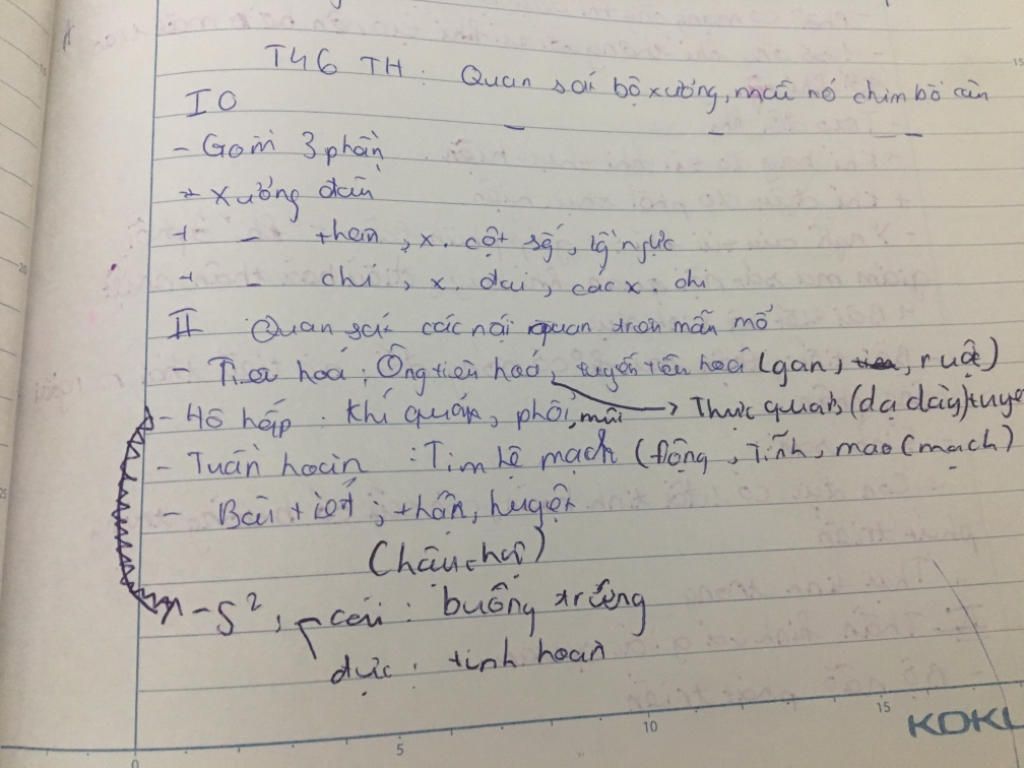 T46 TH: Quan sát bộ xương, mẫu mổ chim bồ câu
I O
- Gồm 3 phần
+ xương đầu
+ - thân, x. cột số, lồ ngực
+ - chi, x. đai, các x. chi
II Quan sát các nội quan trên mẫu mổ
- Tiêu hoá: Ống tiêu hoá, tuyến tiêu hoá (gan, , ruột)
- Hô hấp: khí quản, phổi, mũi → Thực quản, (dạ dày) tuyế
- Tuần hoàn: Tim hệ mạch (Động, Tĩnh, mao (mạch)
- Bài tiết; thận, huyệt
(hậu môn)
- S², cái: buồng trứng
đực: tinh hoàn
5 10 15
0
KOKU